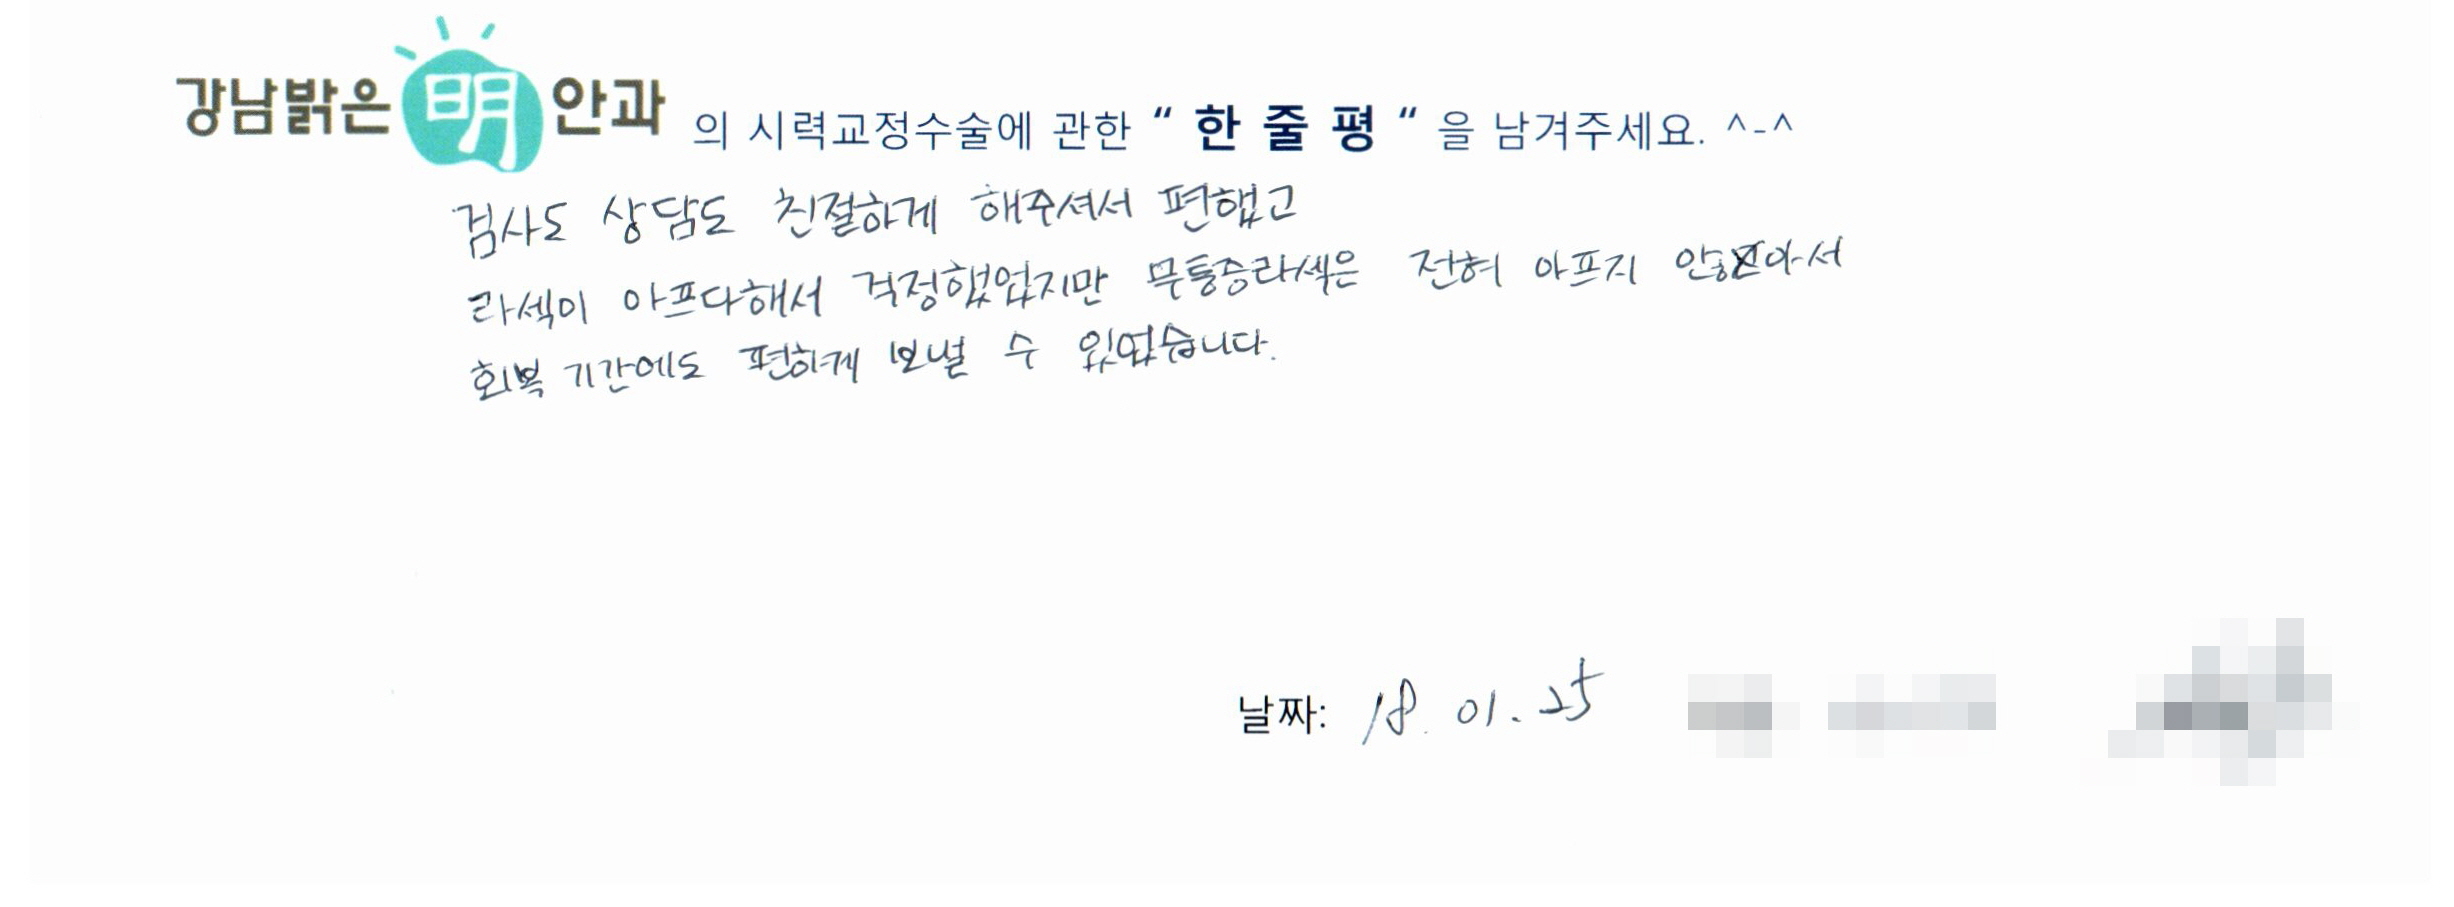 강남밝은 明 안과 의 시력교정수술에 관한 “ 한 줄 평 “ 을 남겨주세요. ^-^
검사도 상담도 친절하게 해주셔서 편했고
라섹이 아프다해서 걱정했었지만 무통증라섹은 전혀 아프지 않아서
회복 기간에도 편하게 보낼 수 있었습니다.
날짜: 18. 01. 25